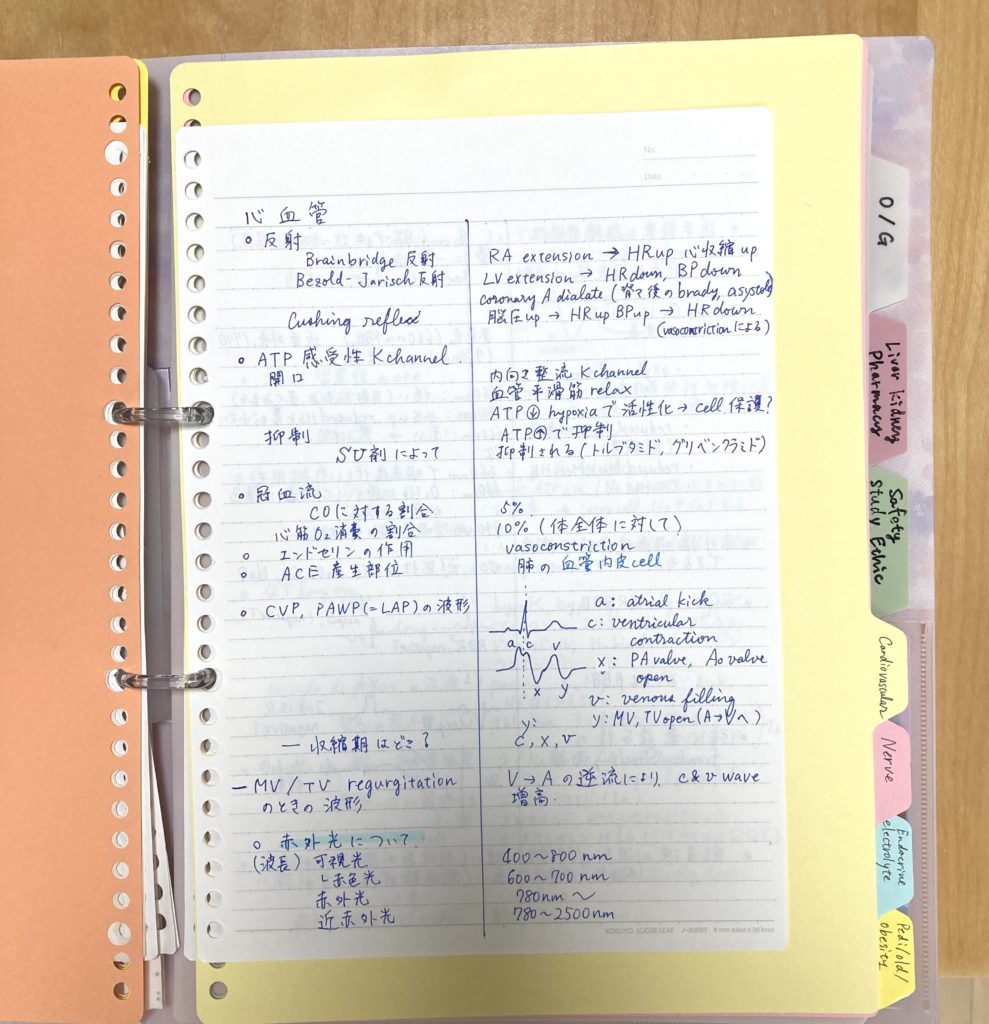 No.
Date
心血管
○ 反射
Brainbridge 反射 RA extension → HR up 心収縮 up
Bezold-Jarisch 反射 LV extension → HR down, BP down
coronary A dialate (脊マ後の brady, asystole)
Cushing reflex 脳圧 up → HR up BP up → HR down
(vasoconstriction による)
○ ATP 感受性 K channel.
開口 内向き整流 K channel
血管平滑筋 relax
ATP↓ hypoxia で活性化 → cell 保護?
抑制 ATP↑ で抑制
SU剤によって 抑制される (トルブタミド, グリベンクラミド)
○ 冠血流
COに対する割合 5%
心筋O₂消費の割合 10% (体全体に対して)
○ エンドセリンの作用 vasoconstriction
○ ACE 産生部位 肺の血管内皮cell
○ CVP, PAWP (=LAP) の波形
a: atrial kick
c: ventricular
contraction
a c v
x: PA valve, Ao valve
open
x y
v: venous filling
y: y: MV, TV open (A→Vへ)
— 収縮期はどこ? c, x, v
— MV/TV regurgitation V→Aの逆流により, c & v wave
のときの波形 増高.
○ 赤外光について
(波長) 可視光 400〜800 nm
└赤色光 600〜700 nm
赤外光 780nm 〜
近赤外光 780〜2500nm
KOKUYO LOOSE-LEAF ノ-836BT 6 mm ruled × 36 lines
O/G
Liver kidney
Pharmacy
Safety
Study Ethic
Cardiovascular
Nerve
Endocrine
electrolyte
Pedi/old/
obesity